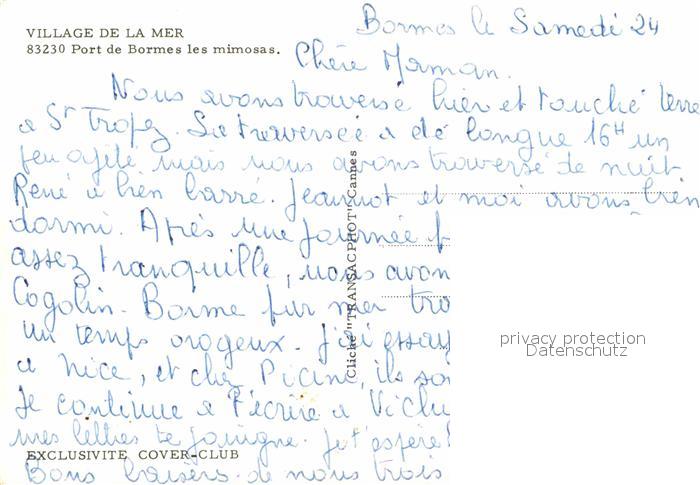 VILLAGE DE LA MER
83230 Port de Bormes les mimosas.
Bormes le Samedi 24
Chère Maman.
Nous avons traversé hier et touché terre
a St Tropez. La traversée a été longue 16H un
peu agité mais nous avons traversé de nuit
René a bien barré. Jeannot et moi avons bien
dormi. Après une journée
assez tranquille, nous avon
Cogolin. Borme sur mer
un temps orageux. J'ai essay
a Nice, et chez Picine, ils
Je continue a t'écrire a Vichy
mes lettres te joingne.
Bons baisers de nous trois
EXCLUSIVITE COVER-CLUB
Cliché "TRANSACPHOT" Cannes
privacy protection
Datenschutz